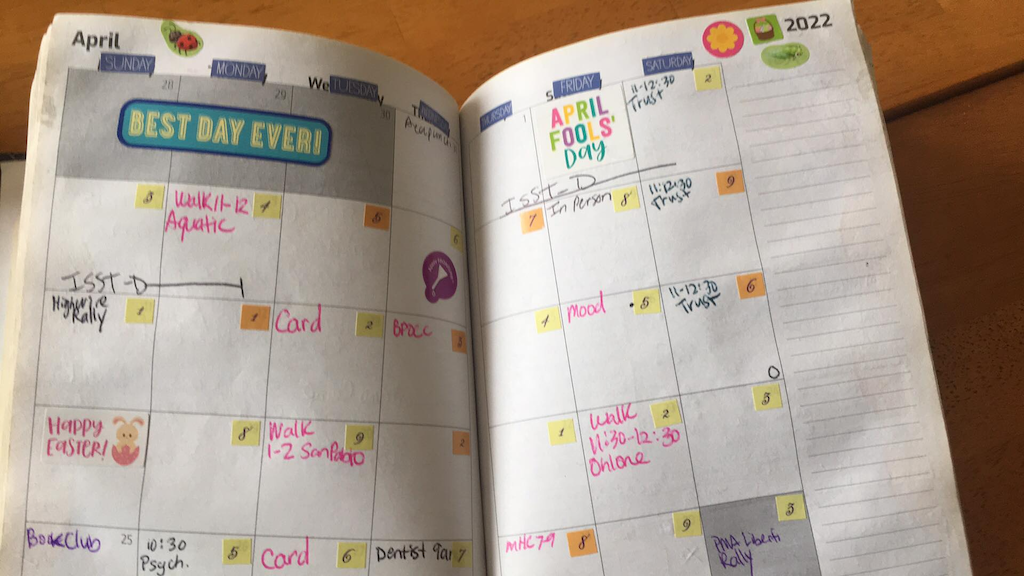 April
2022
SUNDAY
MONDAY
TUESDAY
FRIDAY
SATURDAY
28
29
30
BEST DAY EVER!
1
APRIL
FOOLS'
DAY
11-12:30
Trust
2
3
Walk 11-12
Aquatic
4
5
6
ISST-D
7
In Person
8
11-12:30
Trust
9
ISST-D
Rally
1
1
Card
2
BPACC
3
4
Mood
5
11-12:30
Trust
6
HAPPY
EASTER!
8
Walk
1-2 San Pablo
9
1
1
Walk
11:30-12:30
Ohlone
2
3
Book Club
25
10:30
Psych.
5
Card
6
Dentist 9am
7
MHC 7-9
8
9
Rally
3